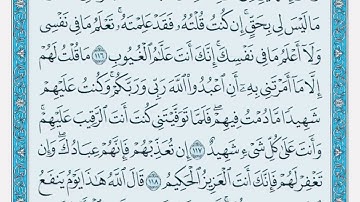 مَا لَيْسَ لِى بِحَقٍّ ۚ إِن كُنتُ قُلْتُهُۥ فَقَدْ عَلِمْتَهُۥ ۚ تَعْلَمُ مَا فِى نَفْسِى
وَلَآ أَعْلَمُ مَا فِى نَفْسِكَ ۚ إِنَّكَ أَنتَ عَلَّـٰمُ ٱلْغُيُوبِ ١١٦ مَا قُلْتُ لَهُمْ
إِلَّا مَآ أَمَرْتَنِى بِهِۦٓ أَنِ ٱعْبُدُوا۟ ٱللَّهَ رَبِّى وَرَبَّكُمْ ۚ وَكُنتُ عَلَيْهِمْ
شَهِيدًا مَّا دُمْتُ فِيهِمْ ۖ فَلَمَّا تَوَفَّيْتَنِى كُنتَ أَنتَ ٱلرَّقِيبَ عَلَيْهِمْ ۚ
وَأَنتَ عَلَىٰ كُلِّ شَىْءٍ شَهِيدٌ ١١٧ إِن تُعَذِّبْهُمْ فَإِنَّهُمْ عِبَادُكَ ۖ وَإِن
تَغْفِرْ لَهُمْ فَإِنَّكَ أَنتَ ٱلْعَزِيزُ ٱلْحَكِيمُ ١١٨ قَالَ ٱللَّهُ هَـٰذَا يَوْمُ يَنفَعُ